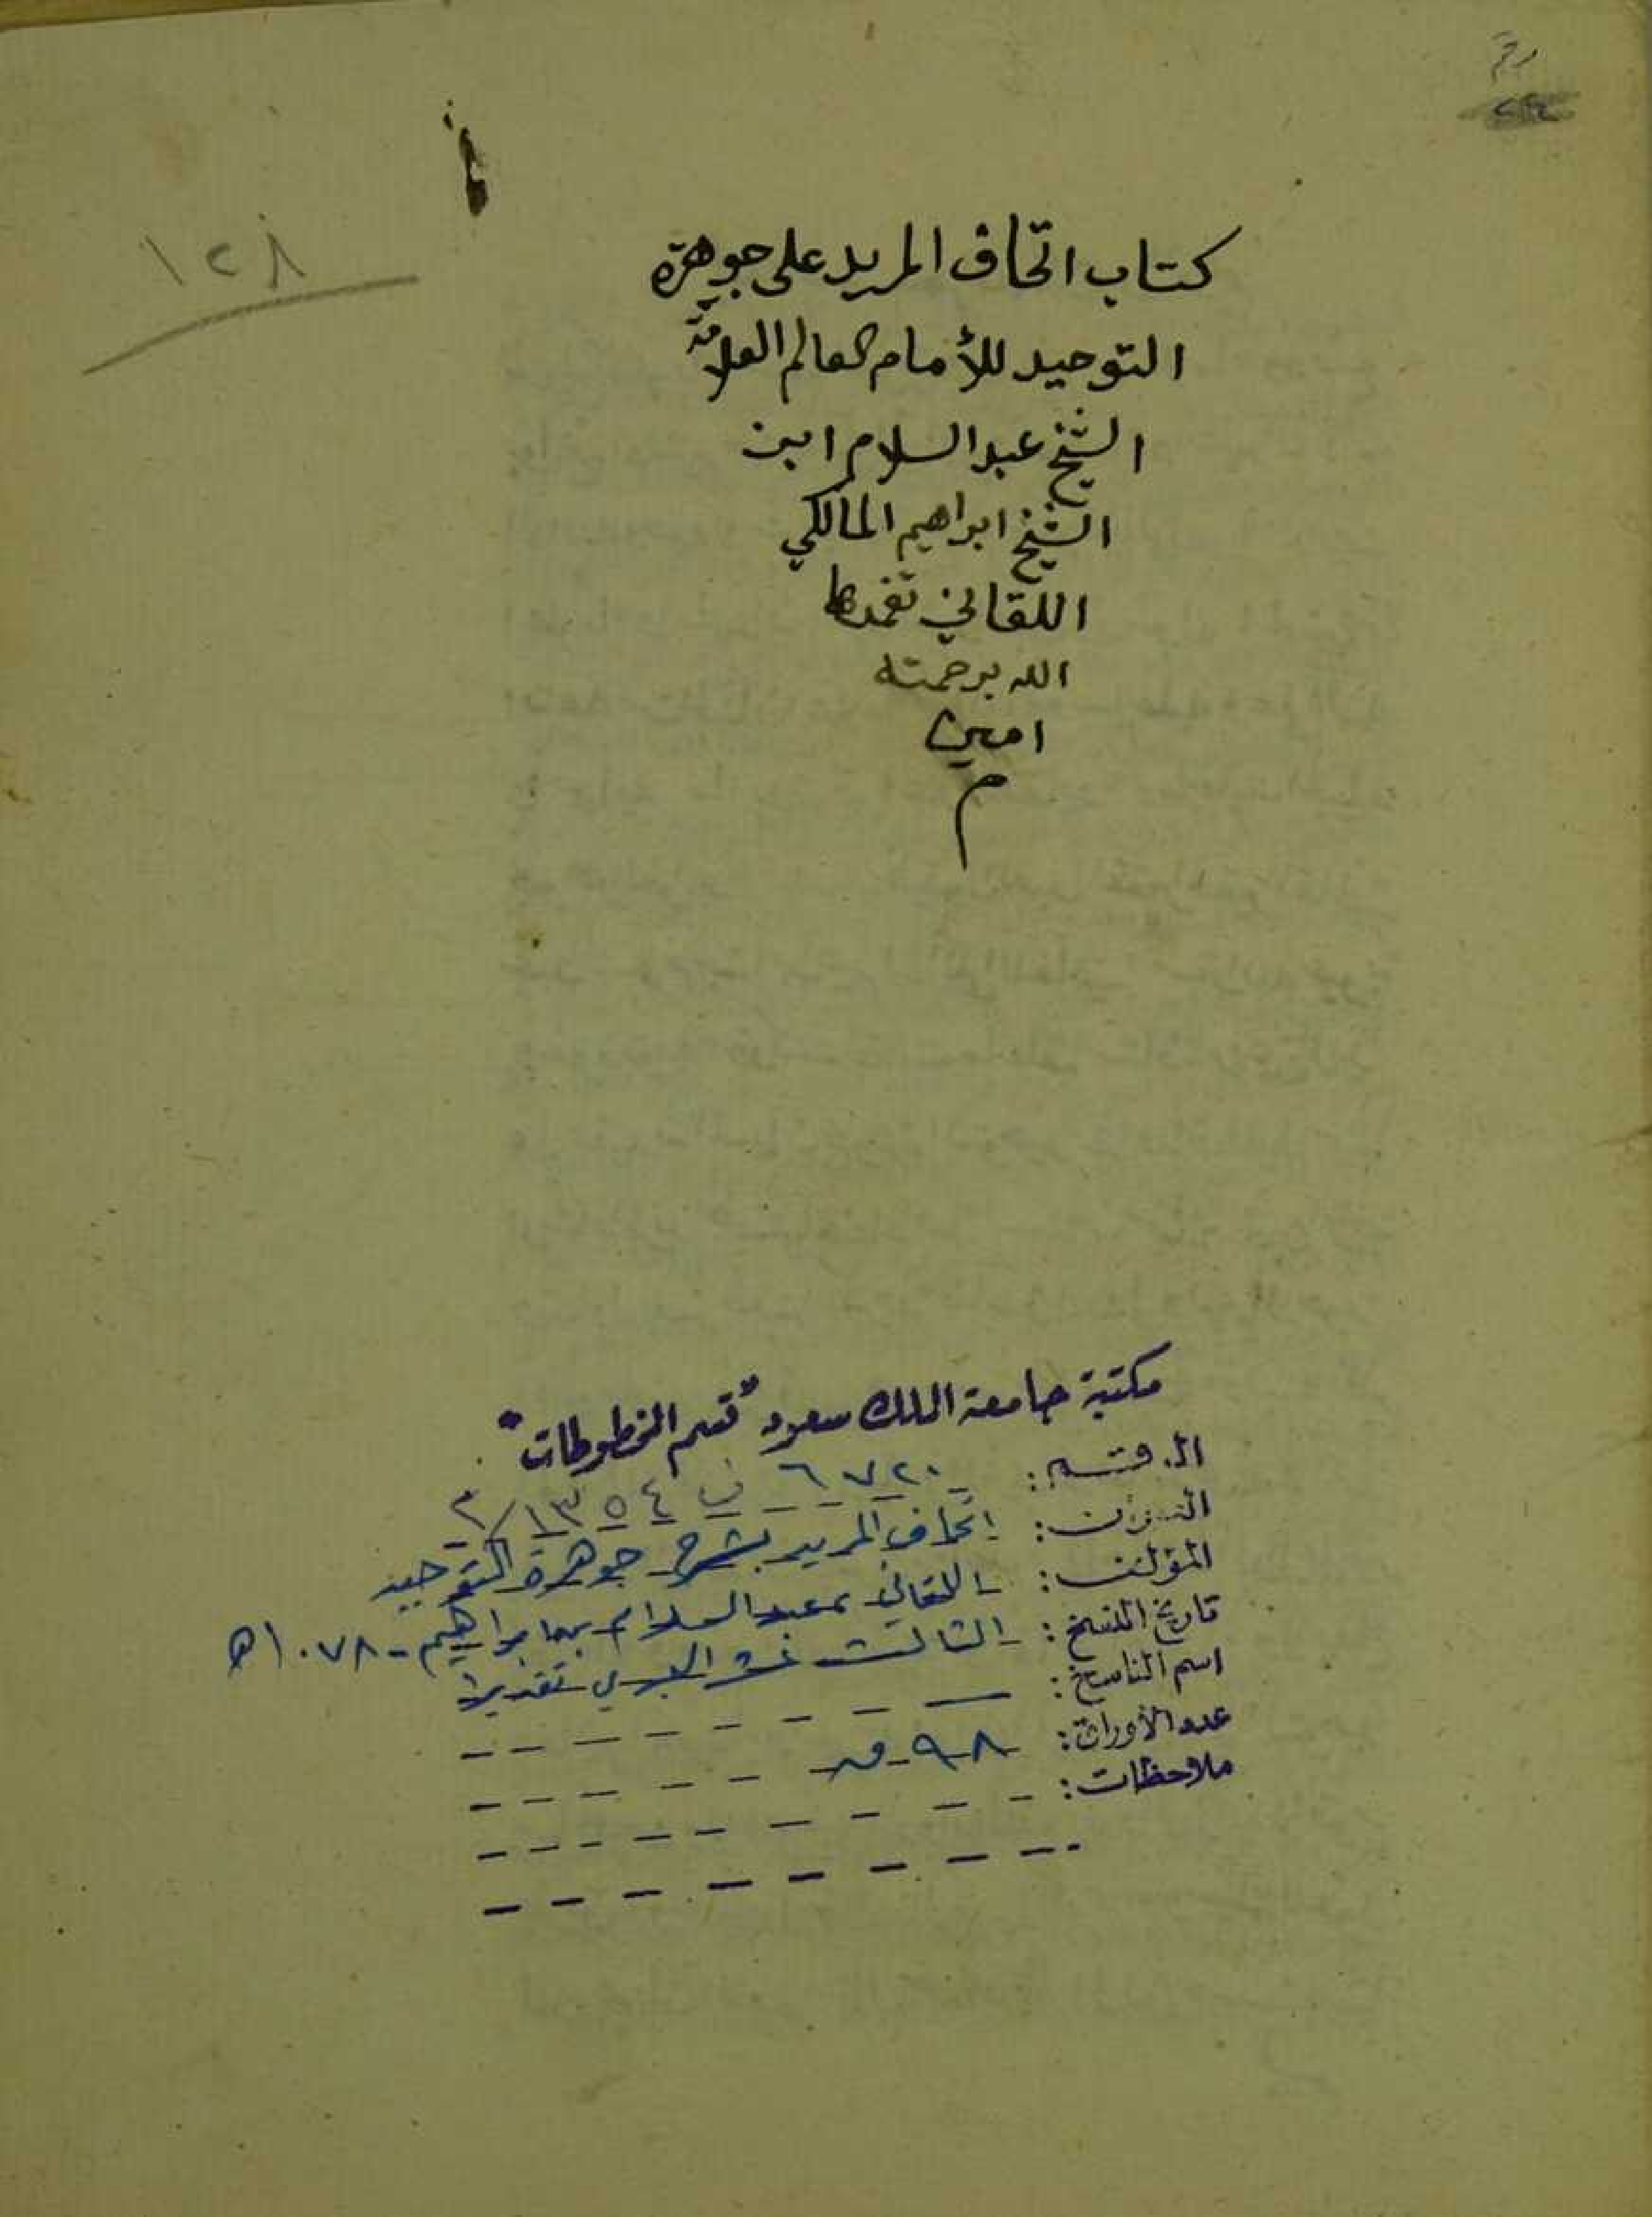 رقم
١٢٨
كتاب اتحاف المريد على جوهرة
التوحيد للأمام العالم العلامة
الشيخ عبد السلام ابن
الشيخ ابراهيم المالكي
اللقاني تغمدها
الله برحمته
امين
م
مكتبة جامعة الملك سعود "قسم المخطوطات"
الرقم: ٦٧٢٠ ف ١٣٥٤/٢
العنوان: اتحاف المريد بشرح جوهرة التوحيد
المؤلف: اللقاني، عبد السلام بن ابراهيم - ١٠٧٨ هـ
تاريخ النسخ: الثالث عشر الهجري تقديرا
اسم الناسخ:
عدد الأوراق: ٩٨ ق
ملاحظات: